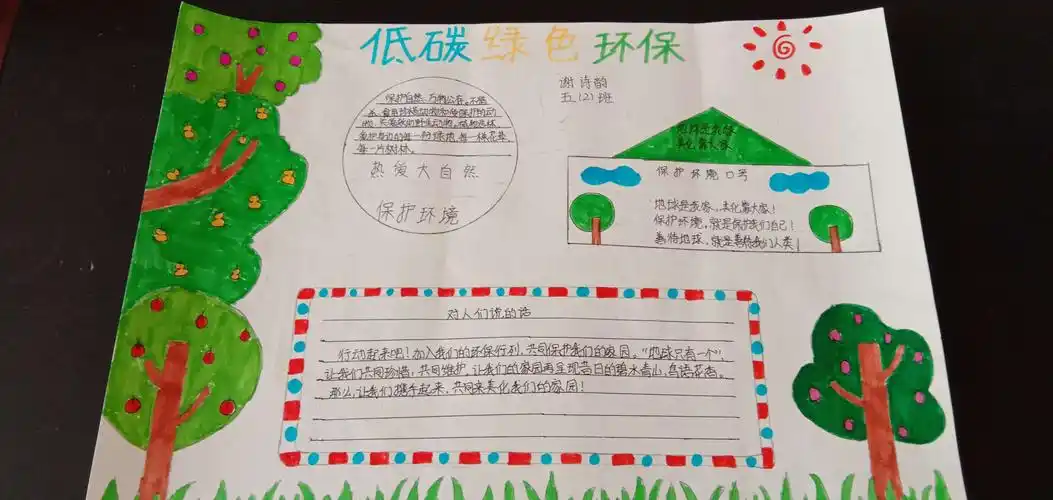 低碳绿色环保
谢诗韵
五(2)班
保护自然,万物公存。不猎
杀、食用珍稀动物和受保护的动
物,关爱我们野生动物。植物是林,
爱护身边的每一份绿地,每一株花草,
每一片树林。
热爱大自然
保护环境
地球是我家
美化靠大家
保护环境口号
地球是我家,美化靠大家!
保护环境,就是保护我们自己!
善待地球,就是善待我们人类!
对人们说的话
行动起来吧!加入我们的环保行列,共同保护我们的家园。"地球只有一个",
让我们共同珍惜,共同维护,让我们的家园再呈现昔日的碧水青山,鸟语花香。
那么,让我们携手起来,共同来美化我们的家园!